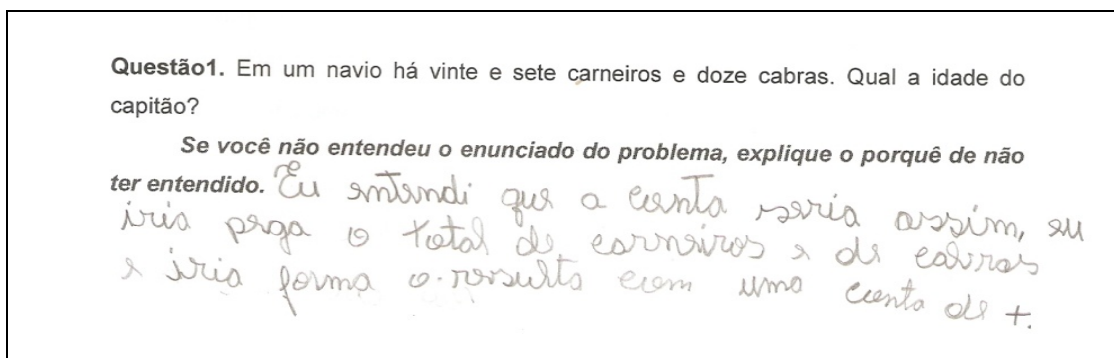 Questão1. Em um navio há vinte e sete carneiros e doze cabras. Qual a idade do
capitão?
Se você não entendeu o enunciado do problema, explique o porquê de não
ter entendido. Eu entendi que a conta seria assim, eu
iria pega o total de carneiros e de cabras
e iria forma o resulta com uma conta de +.